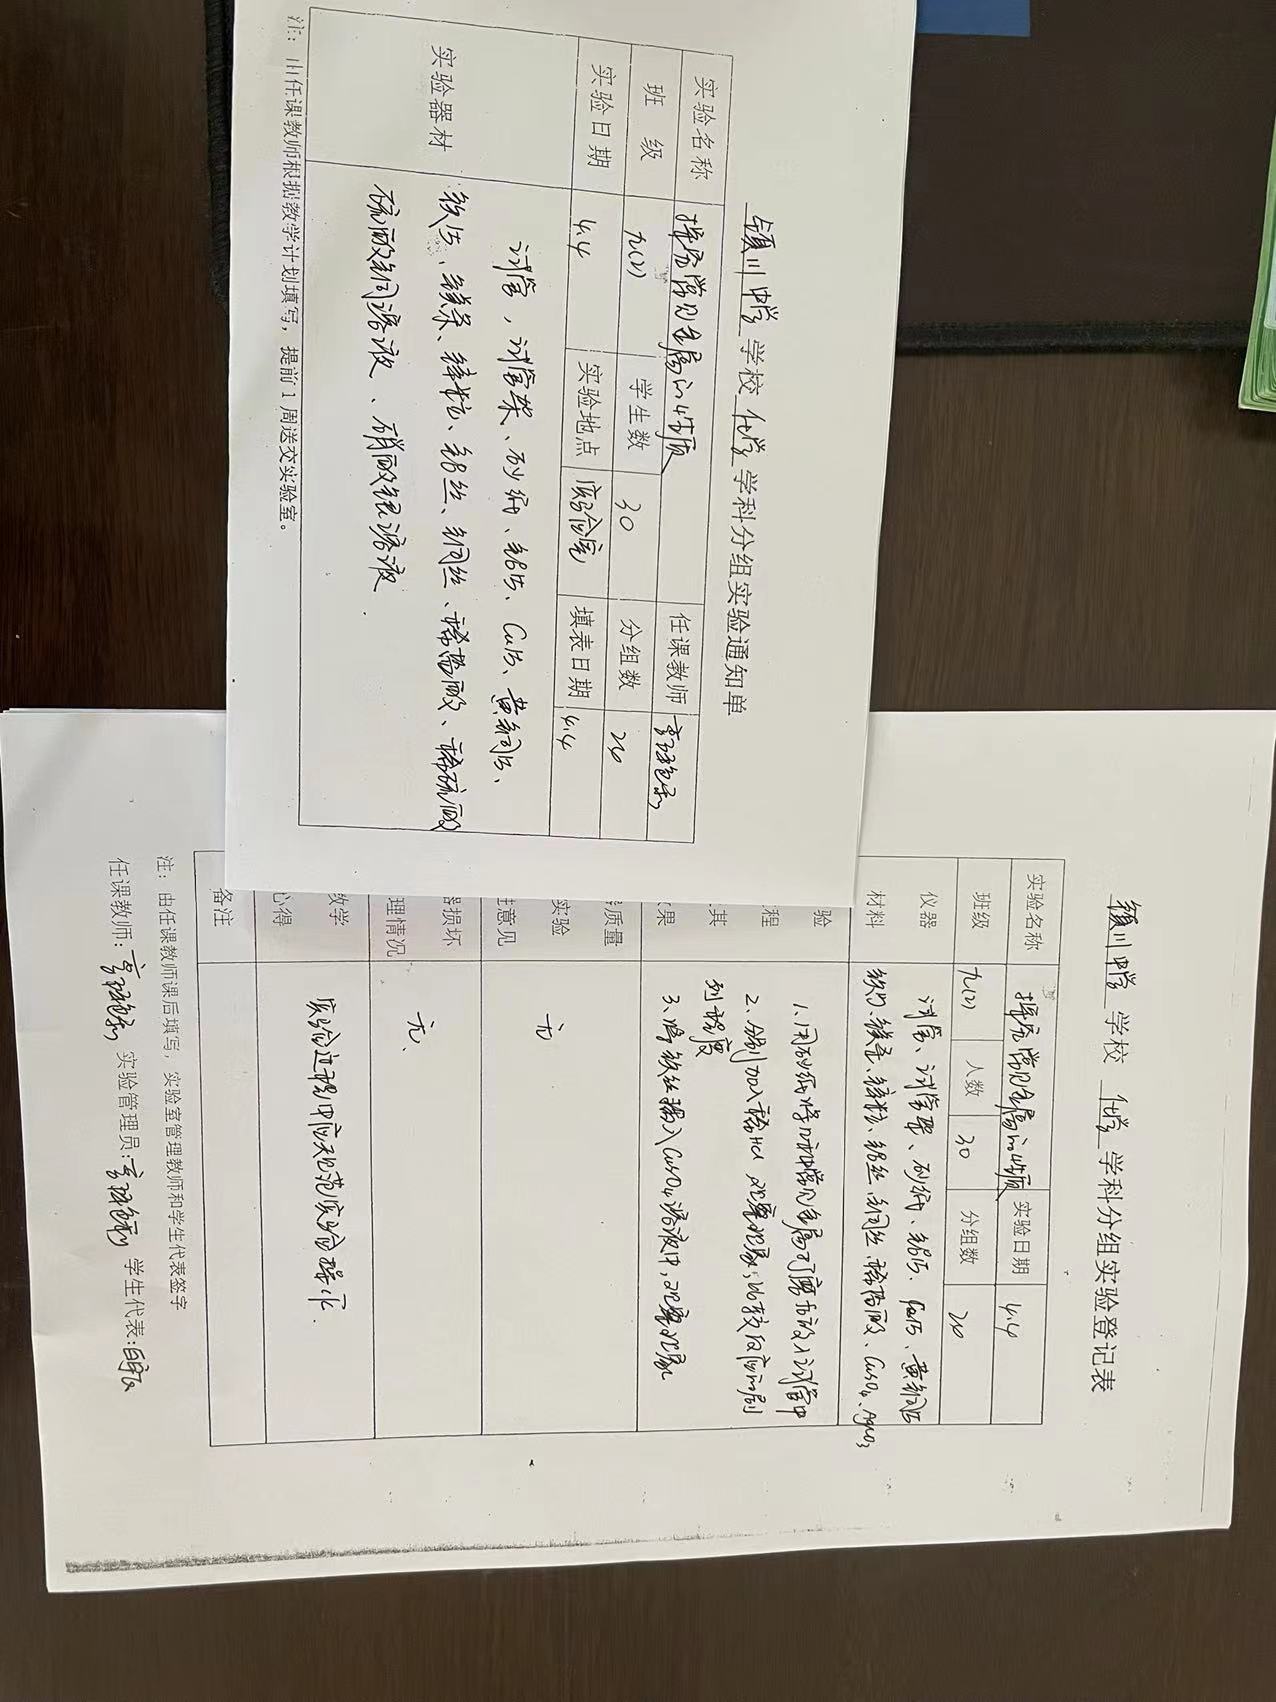 颍川中学 学校 化学 学科分组实验通知单
实验名称 探究常见金属的性质 任课教师
班 级 九(2) 学生数 30 分组数
实验日期 4.4 实验地点 实验室 填表日期 4.4
实验器材
试管，试管架、砂纸、铝片、Cu片、黄铜片、
铁片、镁条、锌粒、铝丝、铜丝、稀盐酸、稀硫酸
硫酸铜溶液、硝酸银溶液.
注：由任课教师根据教学计划填写，提前1周送交实验室。
颍川中学 学校 化学 学科分组实验登记表
实验名称 探究常见金属的性质 实验日期 4.4
班级 九(2) 人数 30 分组数
仪器 试管、试管架、砂纸、铝片、Cu片、黄铜片
材料 铁片、镁条、锌粒、铝丝、铜丝、稀盐酸、CuSO4、AgNO3
验
程
其
果
1、用砂纸将几种常见金属打磨后放入试管中
2、分别加入稀HCl 观察现象；比较反应的剧
烈程度
3、将铁丝插入CuSO4溶液中，观察现象
质量
实验
意见
无
器损坏
理情况
无、
教学
心得
实验过程中应规范实验操作.
备注
注：由任课教师课后填写，实验室管理教师和学生代表签字
任课教师： 实验管理员： 学生代表：